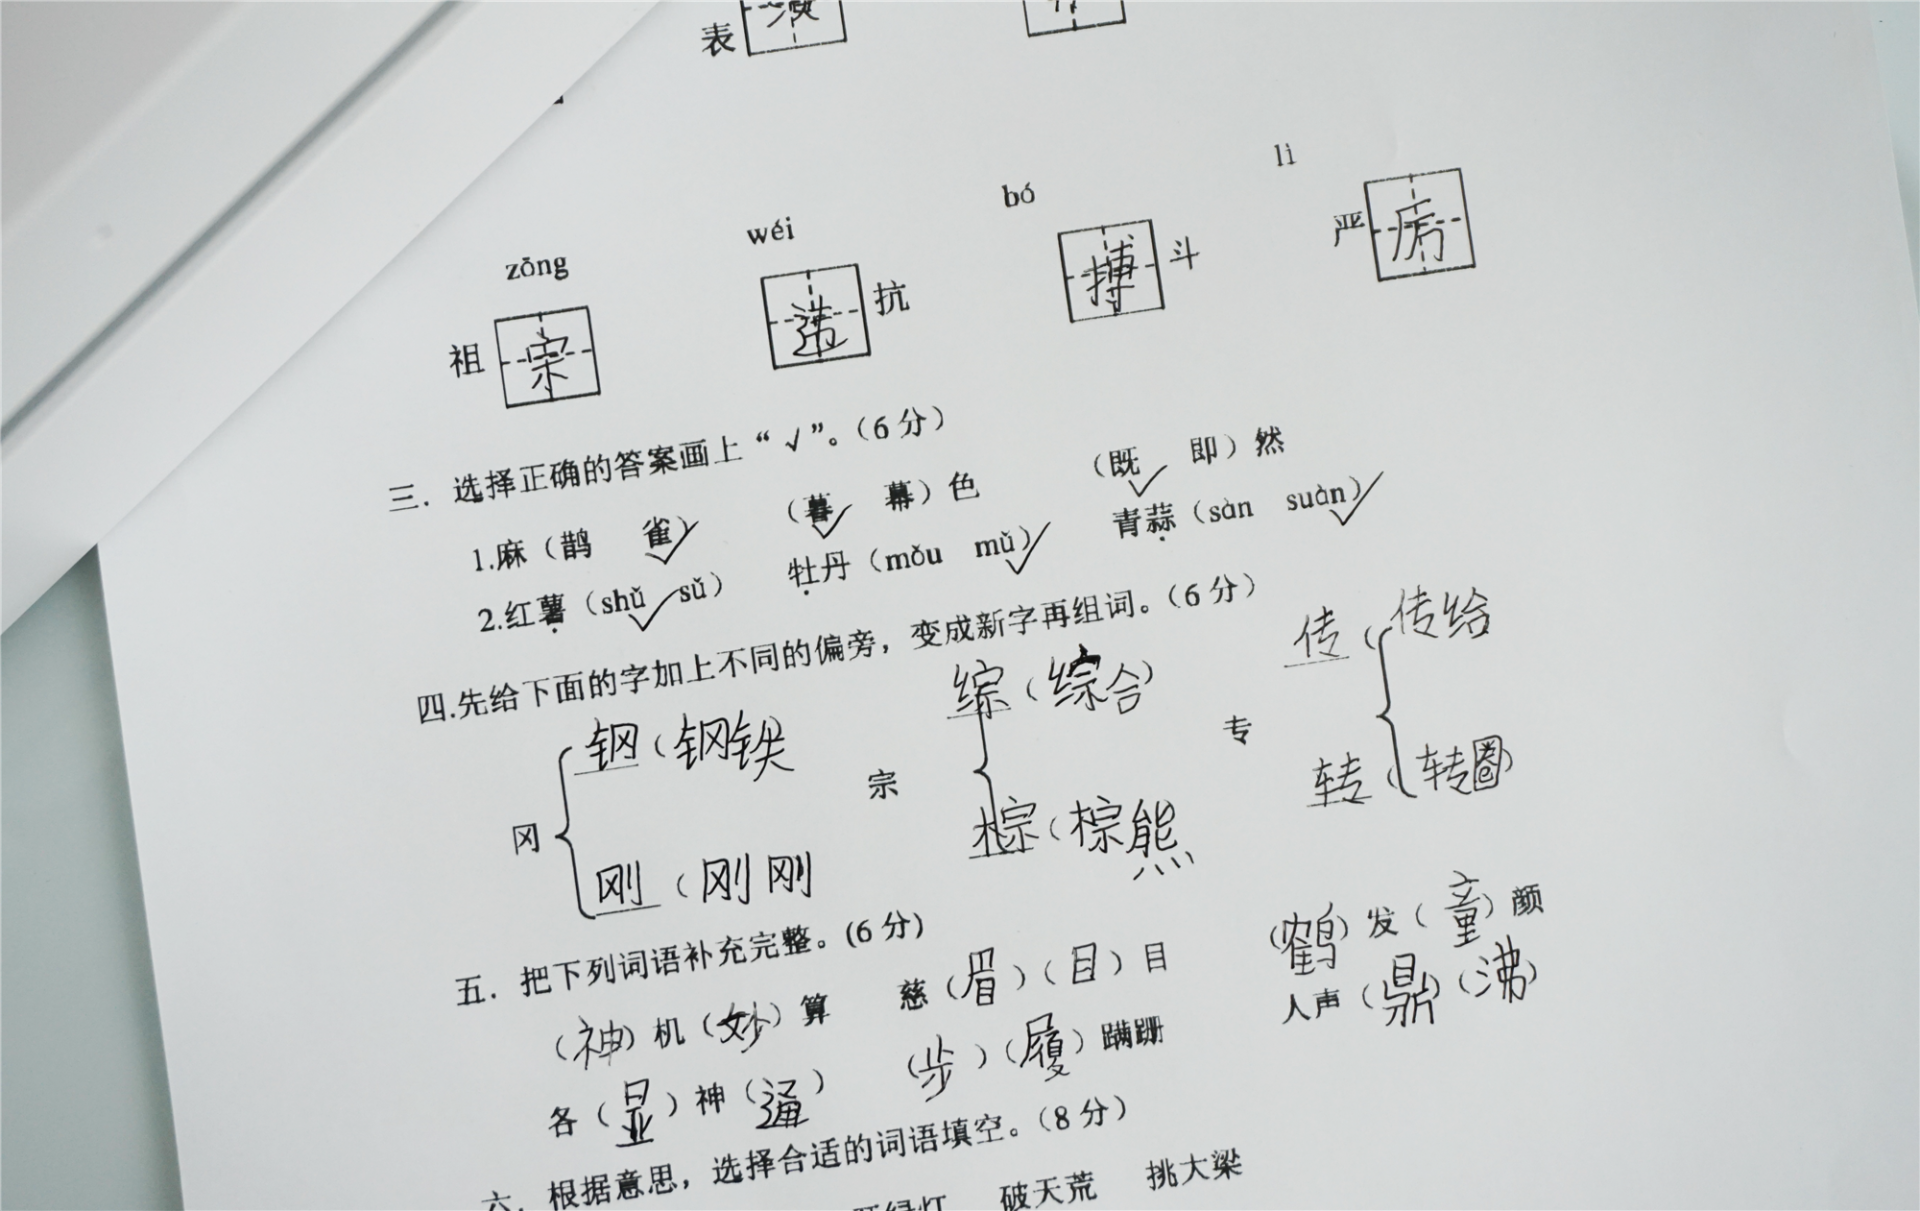 表
zōng wéi bó lì
祖宗 违抗 搏斗 严厉
三．选择正确的答案画上“√”。（6分）
1.麻（鹊 雀√） （暮√ 幕）色 （既√ 即）然
2.红薯（shǔ√ sǔ） 牡丹（mǒu mǔ√） 青蒜（sàn suàn√）
四.先给下面的字加上不同的偏旁，变成新字再组词。（6分）
钢（钢铁 综（综合） 传（传给
冈 宗 专
刚（刚刚 棕（棕熊 转（转圈）
五．把下列词语补充完整。(6分)
（神）机（妙）算 慈（眉）（目）目 （鹤）发（童）颜
各（显）神（通） （步）（履）蹒跚 人声（鼎）（沸）
六．根据意思，选择合适的词语填空。（8分）
破天荒 挑大梁